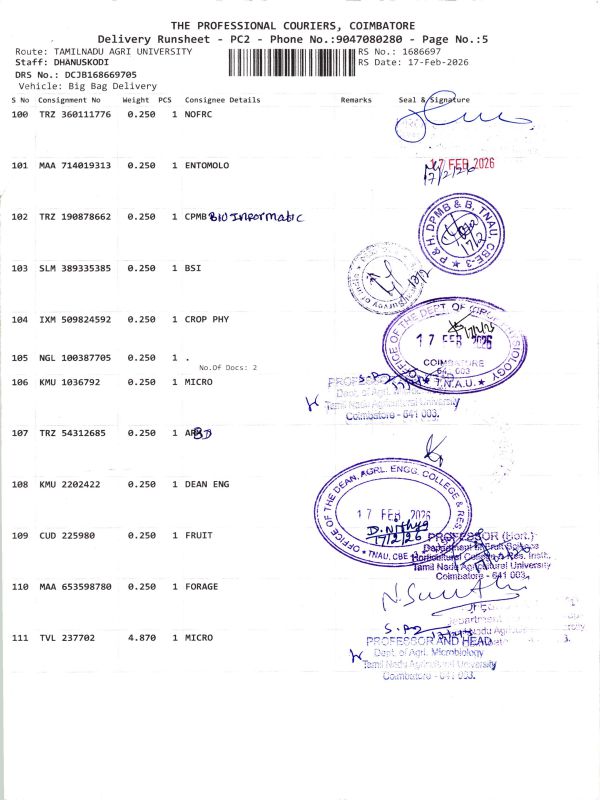 THE PROFESSIONAL COURIERS, COIMBATORE
Delivery Runsheet - PC2 - Phone No.:9047080280 - Page No.:5
Route: TAMILNADU AGRI UNIVERSITY
RS No.: 1686697
Staff: DHANUSKODI
RS Date: 17-Feb-2026
DRS No.: DCJB168669705
Vehicle: Big Bag Delivery
S No Consignment No Weight PCS Consignee Details Remarks Seal & Signature
100 TRZ 360111776 0.250 1 NOFRC
101 MAA 714019313 0.250 1 ENTOMOLO
17 FEB 2026
17/2/26
102 TRZ 190878662 0.250 1 CPMB BIO INFORMATIC
P & H, DPMB & B, TNAU, CBE-3
17/2
103 SLM 389335385 0.250 1 BSI
104 IXM 509824592 0.250 1 CROP PHY
OFFICE OF THE DEPT. OF CROP PHYSIOLOGY
17 FEB 2026
COIMBATORE
641 003
T.N.A.U.
105 NGL 100387705 0.250 1 .
No.Of Docs: 2
106 KMU 1036792 0.250 1 MICRO
Dept. of Agri.
Tamil Nadu Agricultural University
Coimbatore - 641 003.
107 TRZ 54312685 0.250 1
108 KMU 2202422 0.250 1 DEAN ENG
OFFICE OF THE DEAN, AGRL. ENGG. COLLEGE & RES.
17 FEB 2026
D. Nithya
17/2/26
TNAU, CBE
109 CUD 225980 0.250 1 FRUIT
PROFESSOR (Hort.)
Department of Fruit Science
Horticultural College & Res. Instt.
Tamil Nadu Agricultural University
Coimbatore - 641 003.
110 MAA 653598780 0.250 1 FORAGE
111 TVL 237702 4.870 1 MICRO
PROFESSOR AND HEAD
Dept. of Agri. Microbiology
Tamil Nadu Agricultural University
Coimbatore - 641 003.